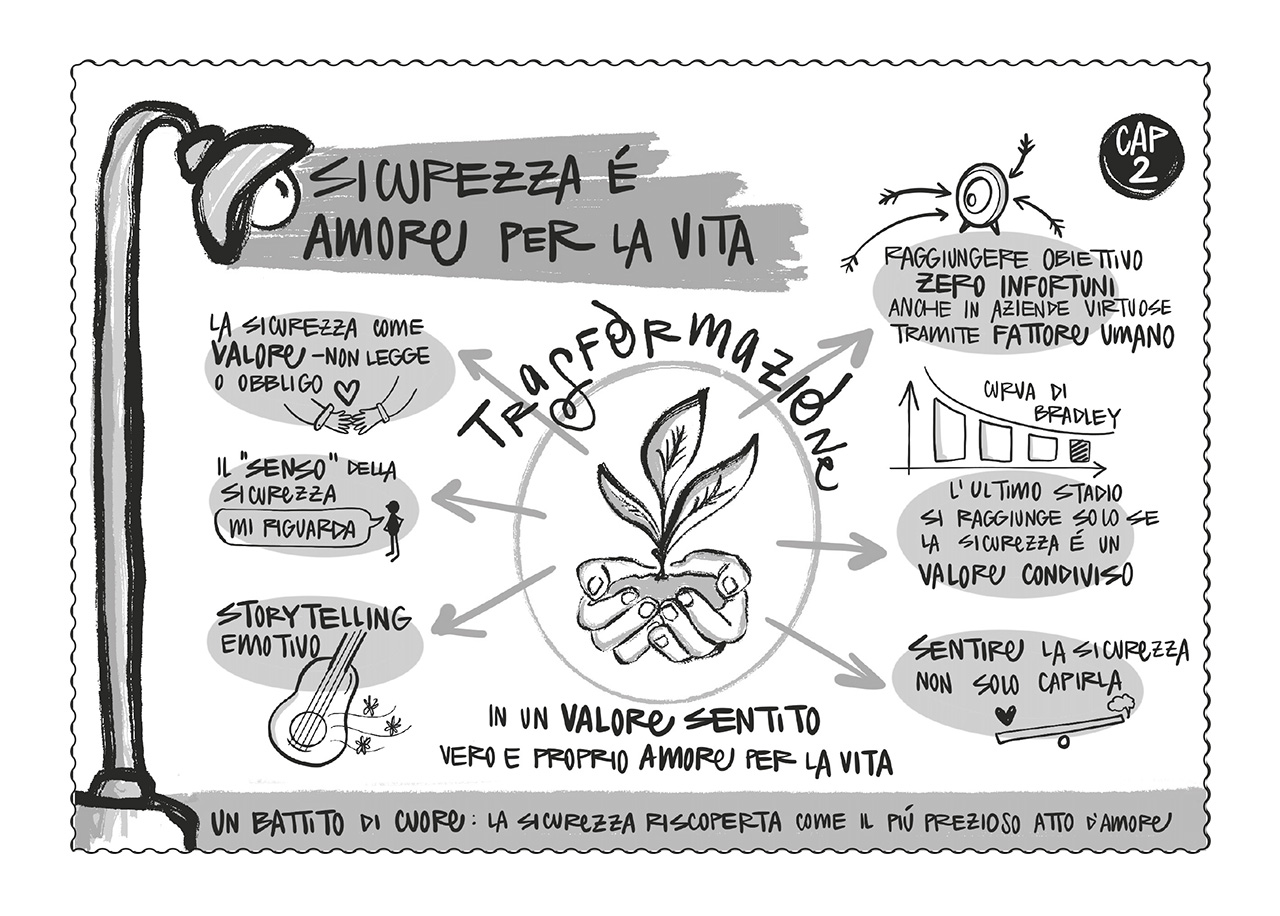 SICUREZZA É
AMORE PER LA VITA
CAP
2
LA SICUREZZA COME
VALORE - NON LEGGE
O OBBLIGO
IL "SENSO" DELLA
SICUREZZA
MI RIGUARDA
STORYTELLING
EMOTIVO
TRASFORMAZIONE
IN UN VALORE SENTITO
VERO E PROPRIO AMORE PER LA VITA
RAGGIUNGERE OBIETTIVO
ZERO INFORTUNI
ANCHE IN AZIENDE VIRTUOSE
TRAMITE FATTORE UMANO
CURVA DI
BRADLEY
L'ULTIMO STADIO
SI RAGGIUNGE SOLO SE
LA SICUREZZA É UN
VALORE CONDIVISO
SENTIRE LA SICUREZZA
NON SOLO CAPIRLA
UN BATTITO DI CUORE: LA SICUREZZA RISCOPERTA COME IL PIÚ PREZIOSO ATTO D'AMORE